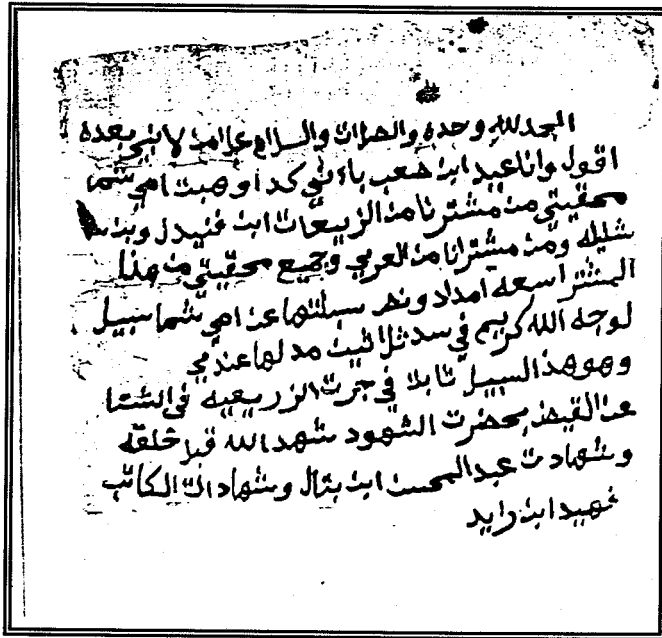 الحمد لله وحده والصلات والسلام على من لا نبي بعده
اقول وانا عبيد ابن مصعب باءنني كد اوهبت امي شما
محقيتي من مشترنا من الزريعات ابن غنيدل وبند
شليله ومن مشترانا من العريمي وجميع محقيتي من هذا
المشترا سعه امداد ونص سبلتها عن امي شما سبيل
لوجه الله كريم في سدثل اثيب مد لها عند مي
وهو هذ السبيل ثابلا في جرت الزريعيه في الشتا
عن القيض بحضرت الشهود شهد الله قبل خلقه
وشهادت عبد المحسن ابن بتال وشهادات الكاتب
فهيد ابن زايد